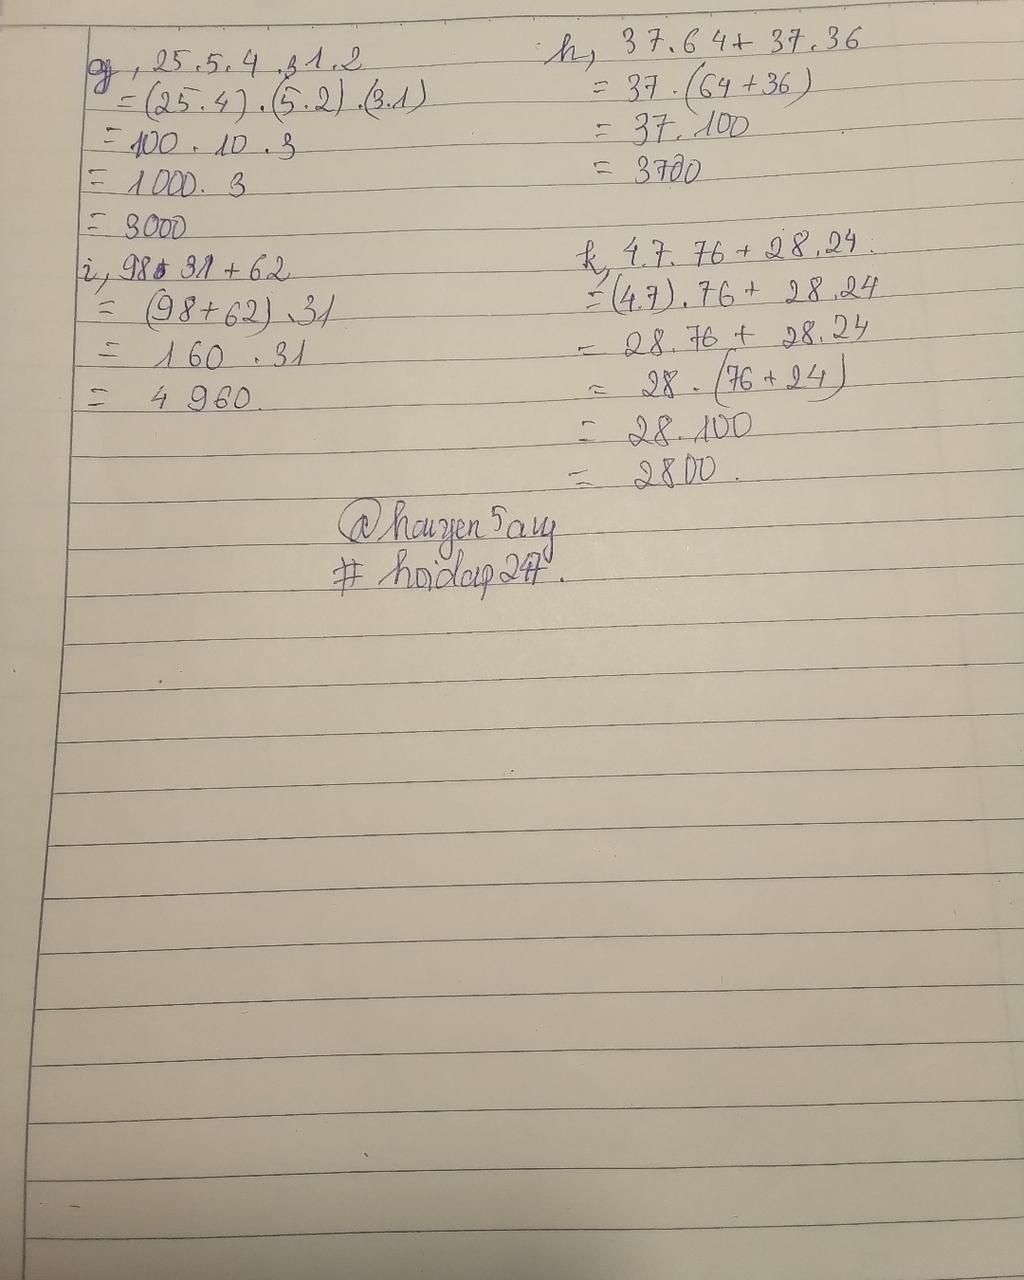 g, 25.5.4.31.2
= (25.4).(5.2).(3.1)
= 100.10.3
= 1000.3
= 3000
h, 37.64+ 37.36
= 37.(64+36)
= 37.100
= 3700
i, 98+31+62
= (98+62).31
= 160.31
= 4960.
k, 4.7.76 + 28.24.
=(4.7).76 + 28.24
= 28.76 + 28.24
= 28.(76+24)
= 28.100
= 2800.
# hoidap247.